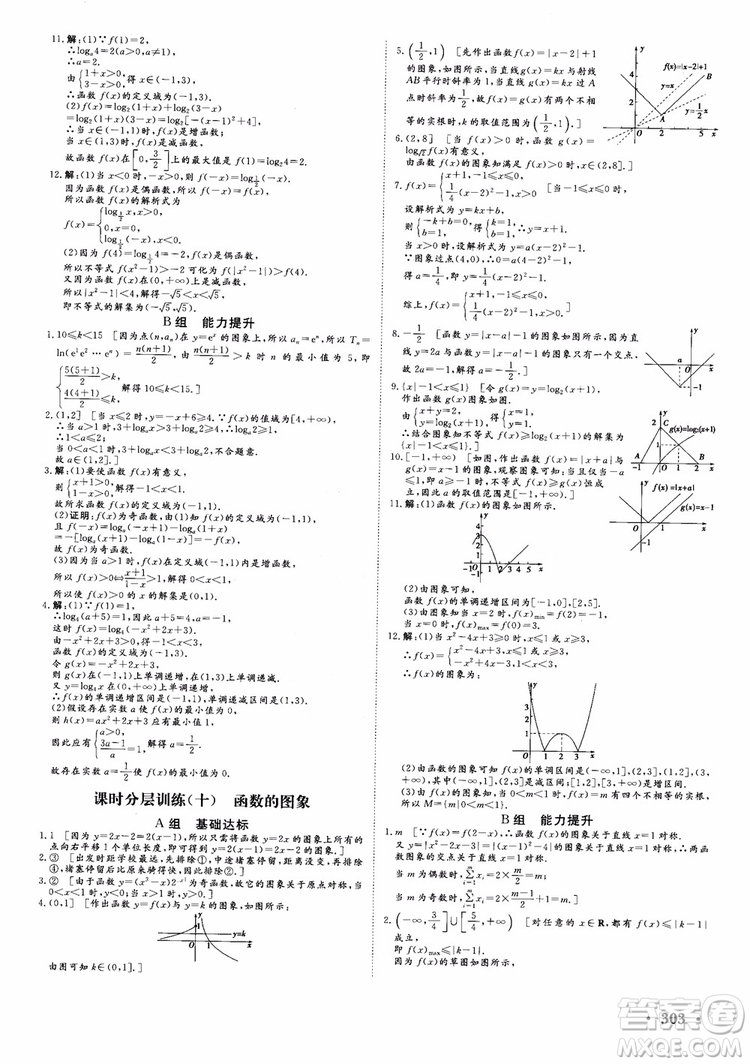 11.解:(1)∵f(1)=2,
∴log_a4=2(a>0,a≠1),
∴a=2.
由{1+x>0, 3-x>0,得x∈(-1,3),
∴函数f(x)的定义域为(-1,3).
(2)f(x)=log₂(1+x)+log₂(3-x)
=log₂(1+x)(3-x)=log₂[-(x-1)²+4],
∴当x∈(-1,1]时,f(x)是增函数;
当x∈(1,3)时,f(x)是减函数,
故函数f(x)在[0,3/2]上的最大值是f(1)=log₂4=2.
12.解:(1)当x<0时,-x>0,则f(-x)=log_{1/2}(-x).
因为函数f(x)是偶函数,所以f(-x)=f(x)=log_{1/2}(-x),
所以函数f(x)的解析式为
(2)因为f(4)=log_{1/2}4=-2,f(x)是偶函数,
所以不等式f(x²-1)>-2转化为f(|x²-1|)>f(4).
又因为函数f(x)在(0,+∞)上是减函数,
所以|x²-1|<4,解得-√5<x<√5,
即不等式的解集为(-√5,√5).
B组 能力提升
1.10≤k<15 [因为点(n,aₙ)在y=eˣ的图象上,所以aₙ=eⁿ,所以Tₙ=
ln(e¹e²…eⁿ)=n(n+1)/2,由n(n+1)/2>k时n的最小值为5,即
{5(5+1)/2>k, 4(4+1)/2≤k,解得10≤k<15.]
2.(1,2] [当x≤2时,y=-x+6≥4.∵f(x)的值域为[4,+∞),
∴当a>1时,3+log_a x>3+log_a2≥4,∴log_a2≥1,
∴1<a≤2;
当0<a<1时,3+log_a x<3+log_a2,不合题意.
故a∈(1,2].]
3.解:(1)要使函数f(x)有意义,
则{x+1>0, 1-x>0,解得-1<x<1.
故所求函数f(x)的定义域为(-1,1).
(2)证明:由(1)知f(x)的定义域为(-1,1),
且f(-x)=log_a(-x+1)-log_a(1+x)
=-[log_a(x+1)-log_a(1-x)]=-f(x),
故f(x)为奇函数.
(3)因为当a>1时,f(x)在定义域(-1,1)上是增函数,
所以f(x)>0⇔(x+1)/(1-x)>1,解得0<x<1.
所以使f(x)>0的x的解集是(0,1).
4.解:(1)∵f(1)=1,
∴log₄(a+5)=1,因此a+5=4,a=-1,
这时f(x)=log₄(-x²+2x+3).
由-x²+2x+3>0得-1<x<3,
函数f(x)的定义域为(-1,3).
令g(x)=-x²+2x+3,
则g(x)在(-1,1)上单调递增,在(1,3)上单调递减.
又y=log₄x在(0,+∞)上单调递增,
∴f(x)的单调递增区间是(-1,1),单调递减区间是(1,3).
(2)假设存在实数a使f(x)的最小值为0,
则h(x)=ax²+2x+3应有最小值1,
因此应有{a>0, (3a-1)/a=1,解得a=1/2.
故存在实数a=1/2使f(x)的最小值为0.
课时分层训练(十) 函数的图象
A组 基础达标
1.1 [因为y=2ˣ⁻¹=2^(x-1),所以只需将函数y=2ˣ的图象上所有的
点向右平移1个单位长度,即可得到y=2ˣ⁻¹=2^(x-1)的图象.]
2.③ [出发时距学校最远,先排除①,中途堵塞停留,距离没变,再排除
④,堵塞停留后比原来骑得快,因此排除②.]
3.② [由于函数y=(x³-x)2^|x|为奇函数,故它的图象关于原点对称,当
0<x<1时,y<0;当x>1时,y>0.]
4.(0,1] [作出函数y=f(x)与y=k的图象,如图所示:
y=k
由图可知k∈(0,1].]
5.(1/2,1) [先作出函数f(x)=|x-2|+1
的图象,如图所示,当直线g(x)=kx与直线
AB平行时斜率为1,当直线g(x)=kx过A
点时斜率为1/2,故f(x)=g(x)有两个不相
等的实根时,k的取值范围为(1/2,1).]
f(x)=|x-2|+1
y=x
y=1/2x
6.(2,8] [当f(x)>0时,函数g(x)=
f(x)有意义,
由函数f(x)的图象知满足f(x)>0时,x∈(2,8].]
7.f(x)={ 1/4(x-2)²-1,x>0 [当-1≤x≤0时,
设解析式为y=kx+b,
则{-k+b=0, b=1,得{k=1, b=1,∴y=x+1.
当x>0时,设解析式为y=a(x-2)²-1.
∵图象过点(4,0),∴0=a(4-2)²-1,
得a=1/4,即y=1/4(x-2)²-1.
综上,f(x)={x+1,-1≤x≤0, 1/4(x-2)²-1,x>0.]
8.-1/2 [函数y=|x-a|-1的图象如图所示,
因为直线y=2a与函数y=|x-a|-1的图象
只有一个交点,
故2a=-1,解得a=-1/2.]
9.{x|-1<x≤1} [令g(x)=y=log₂(x+1),作出函数g(x)图象如图.
由{x+y=2, y=log₂(x+1),得{x=1, y=1.
∴结合图象知不等式f(x)≥log₂(x+1)的解集为
{x|-1<x≤1}.]
g(x)=log₂(x+1)
10.[-1,+∞) [如图,作出函数f(x)=|x+a|与
g(x)=x-1的图象,观察图象可知:当且仅当-a≤
1,即a≥-1时,不等式f(x)≥g(x)恒成立,
因此a的取值范围是[-1,+∞).]
f(x)=|x+a|
g(x)=x-1
11.解:(1)函数f(x)的图象如图所示.
(2)由图象可知,
函数f(x)的单调递增区间为[-1,0],[2,5].
(3)由图象知当x=2时,f(x)min=f(2)=-1,
当x=0时,f(x)max=f(0)=3.
12.解:(1)当x²-4x+3≥0时,x≤1或x≥3,
∴f(x)={x²-4x+3,x≤1或x≥3, -x²+4x-3,1<x<3,
∴f(x)的图象为:
(2)由函数的图象可知f(x)的单调区间是(-∞,1],(2,3),(1,2],[3,
+∞),其中(-∞,1],(2,3)是单调减区间;(1,2],[3,+∞)是单调增区间.
(3)由f(x)的图象知,当0<m<1时,f(x)=m有四个不相等的实根,
所以M={m|0<m<1}.
B组 能力提升
1.m [∵f(x)=f(2-x),∴函数f(x)的图象关于直线x=1对称.
又y=|x²-2x-3|=|(x-1)²-4|的图象关于直线x=1对称,∴两函
数图象的交点关于直线x=1对称.
当m为偶数时,∑xᵢ=2×m/2=m;
当m为奇数时,∑xᵢ=2×(m-1)/2+1=m.]
2.(-∞,3/4]∪[5/4,+∞) [对任意的x∈R,都有f(x)≤|k-1|
成立,
即f(x)max≤|k-1|.
因为f(x)的草图如图所示,
303
答案圈
MXQE.COM